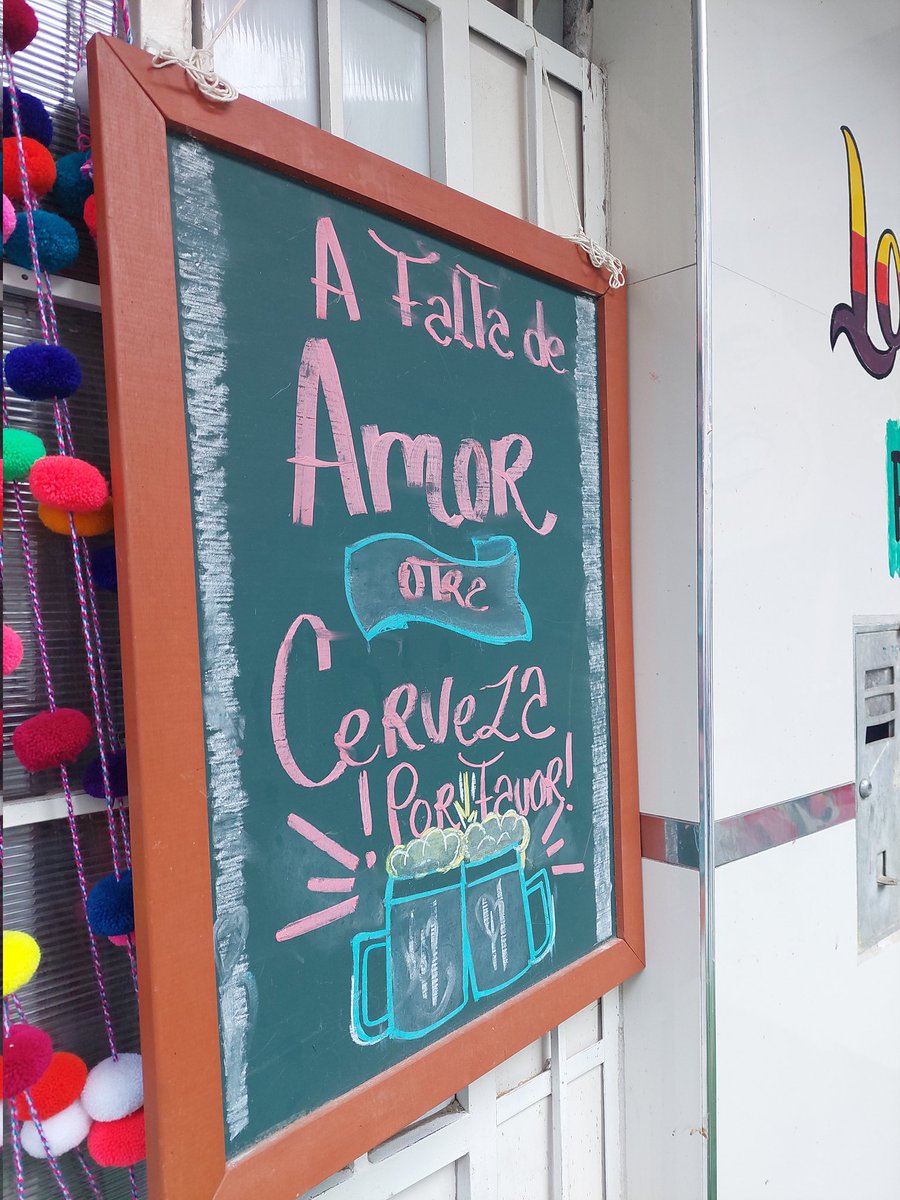 A Falta de
Amor
otra
Cerveza
¡Por Favor!
Lo